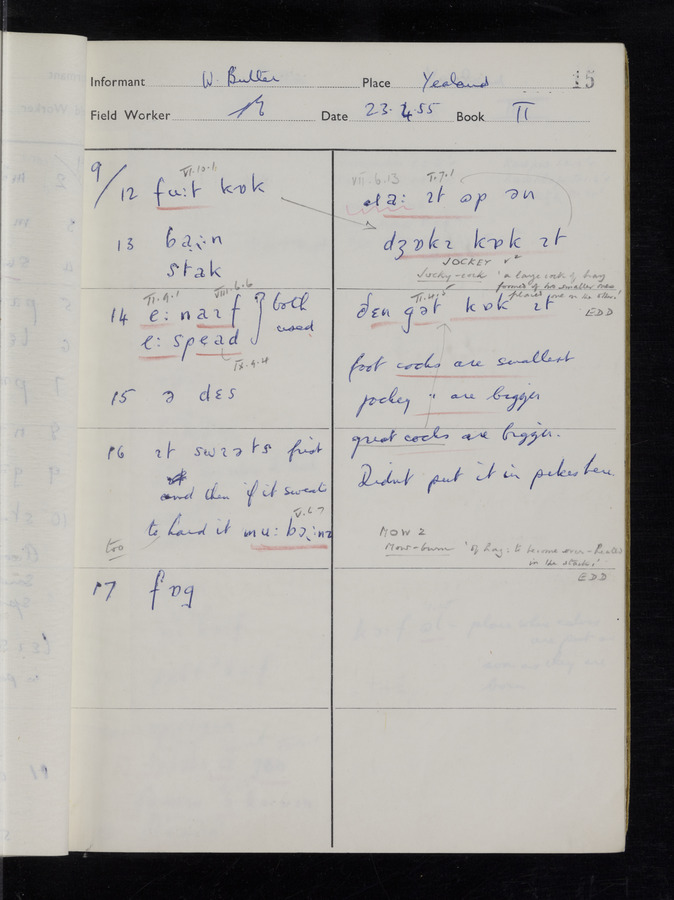 Informant W. Butler Place Yealand 15
Field Worker Date 23.4.55 Book II
9/12 fu:t kɒk VI.10.1
13 ba:ɪn
stak
14 e: naɪf } both II.9.1 VIII.6.6
e: spead used IX.4.4
15 ə dɛs
16 ɪt swɪəts first
and then if it sweats
too hard it mu: bɔ:nz V.6.7
too
17 fɒg
VII.6.13 I.7.1
la: ɪt ɒp ən
dʒɒkɪ kɒk ɪt
JOCKEY
Jocky-cock 'a large cock of hay
formed of two smaller ones
placed one on the other.'
EDD
ðɛn gət kɒk ɪt
foot cocks are smallest
jockey " are bigger
great cocks are bigger.
Didnt put it in pikes here.
MOW 2
Mow-burn 'Of hay: to become over-heated
in the stack.'
EDD